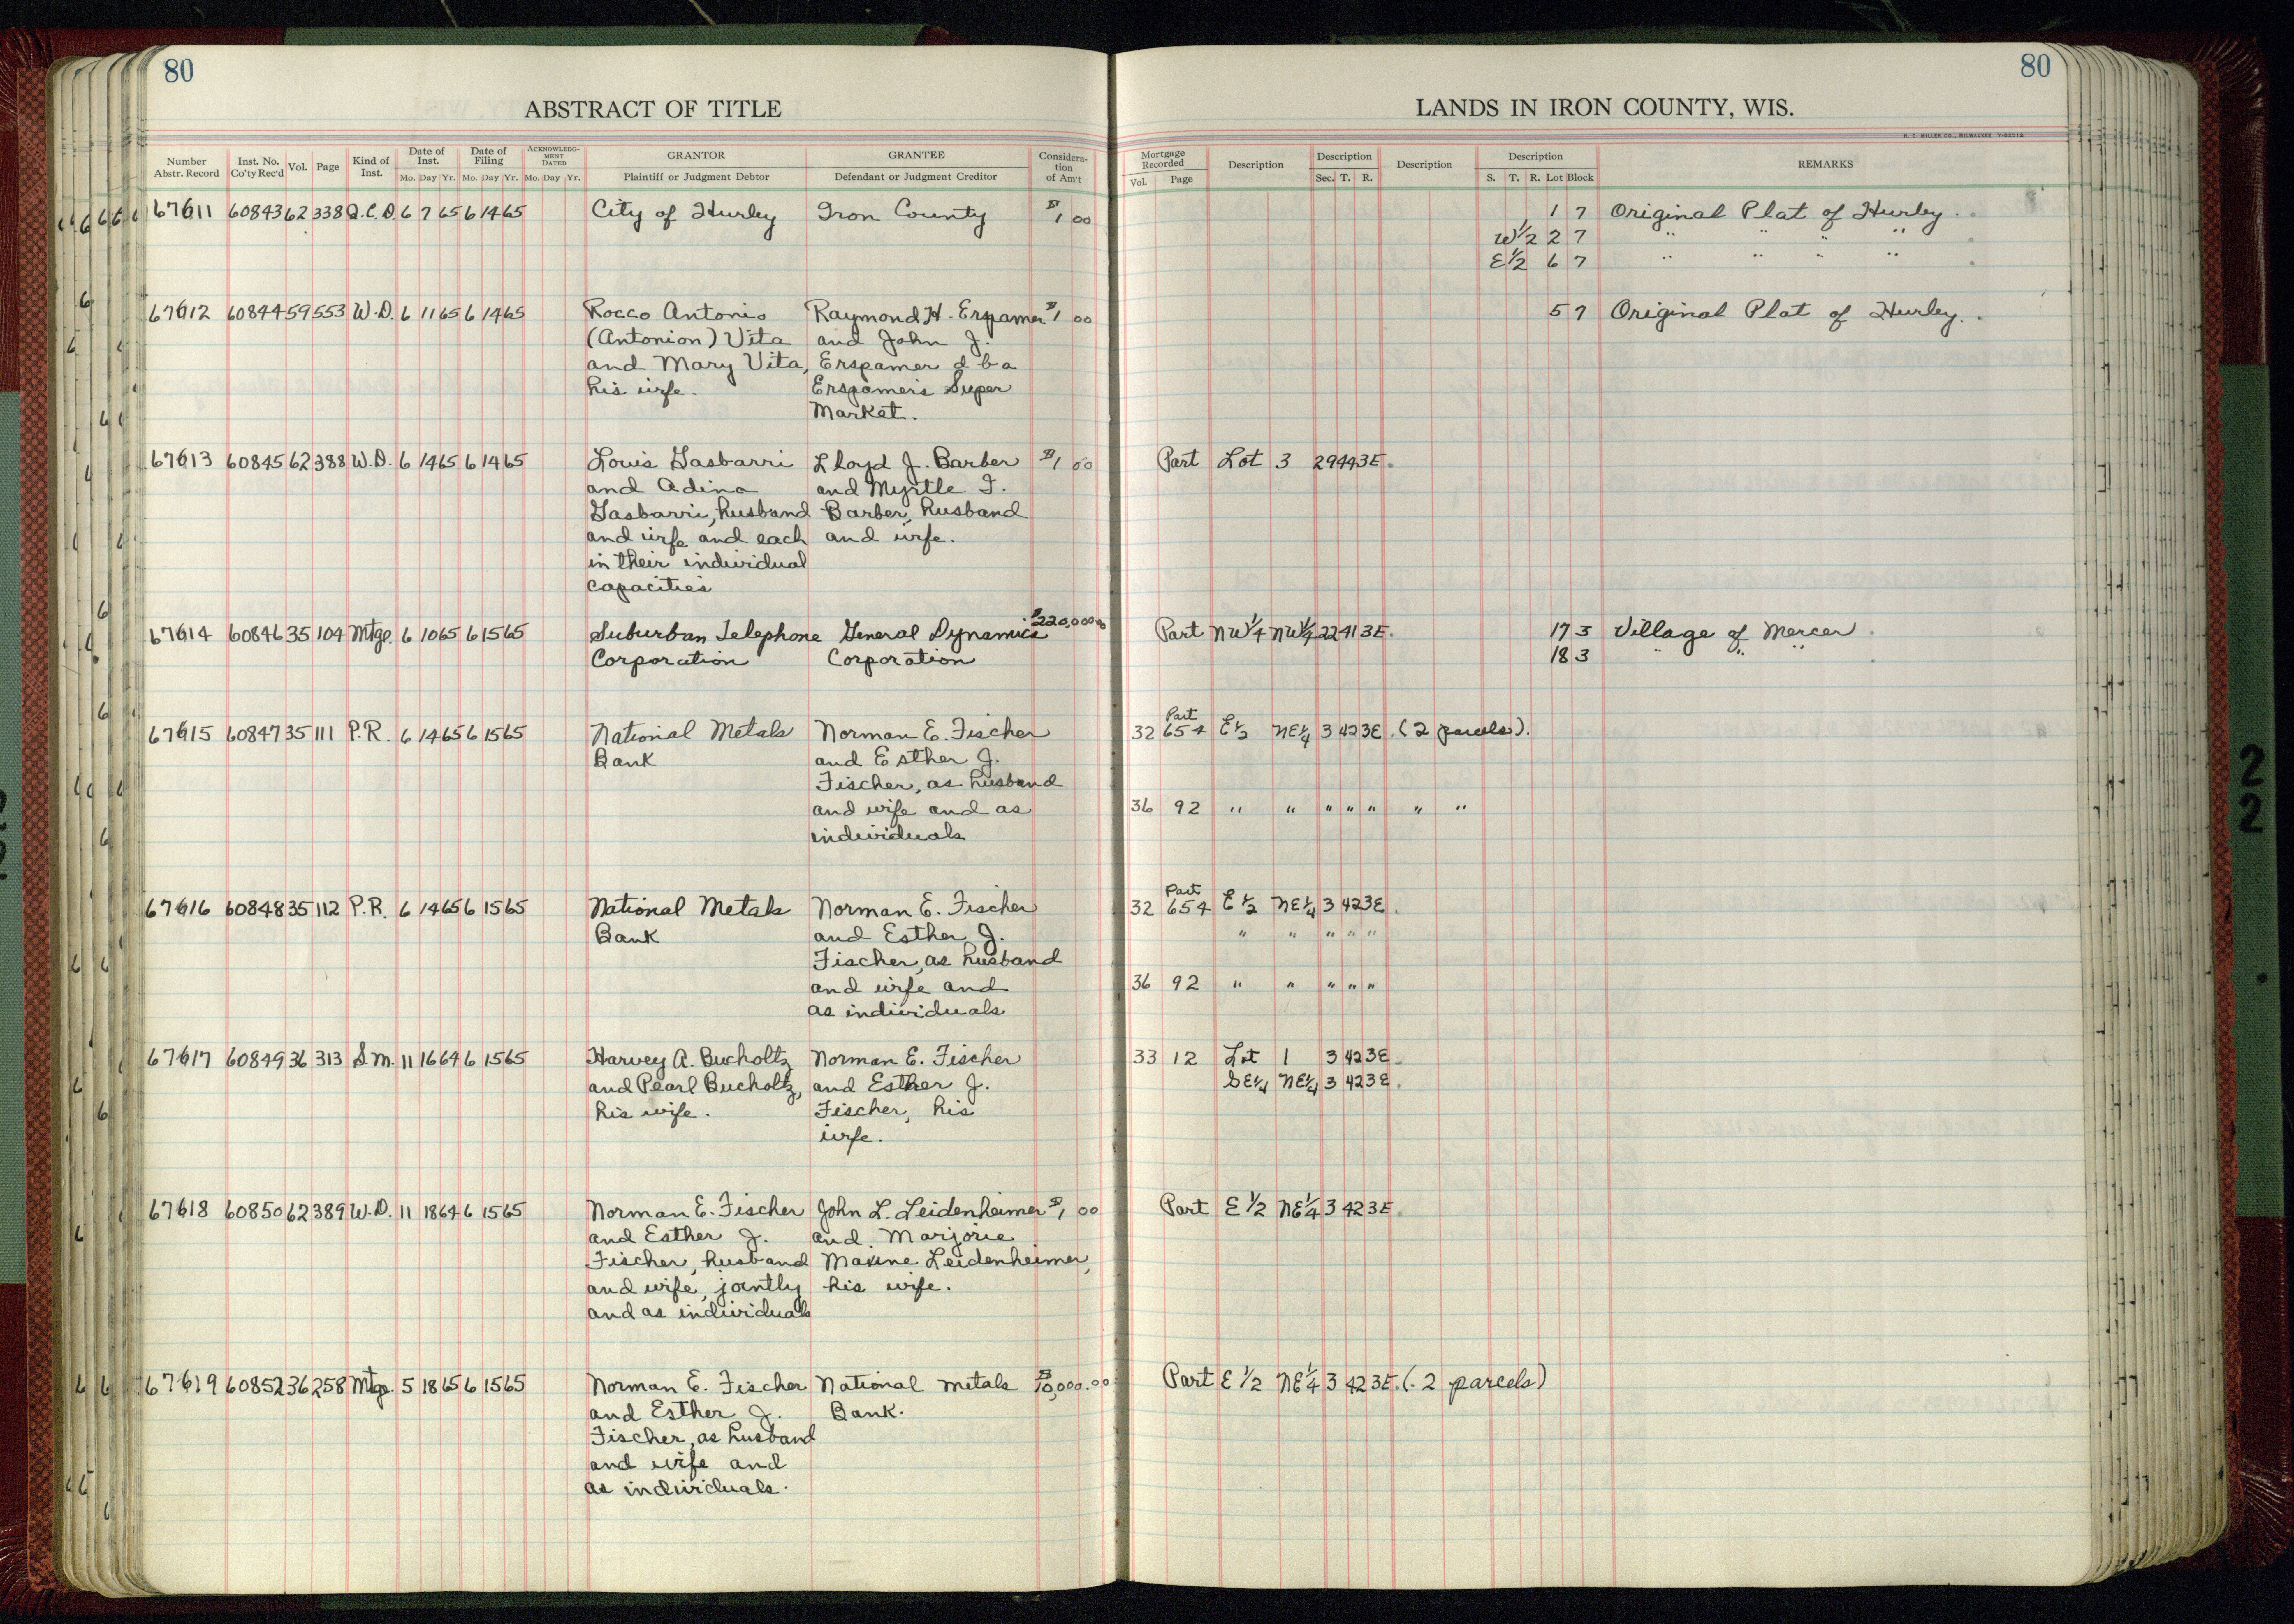 80
80
ABSTRACT OF TITLE
LANDS IN IRON COUNTY, WIS.
H. C. MILLER CO., MILWAUKEE
Number Abstr. Record | Inst. No. Co'ty Rec'd | Vol. | Page | Kind of Inst. | Date of Inst. Mo. Day Yr. | Date of Filing Mo. Day Yr. | ACKNOWLEDGMENT DATED Mo. Day Yr. | GRANTOR Plaintiff or Judgment Debtor | GRANTEE Defendant or Judgment Creditor | Consideration of Am't | Mortgage Recorded Vol. Page | Description | Description Sec. T. R. | Description | Description S. T. R. Lot Block | REMARKS
67611 60843 62 338 Q.C.D. 6 7 65 6 14 65 City of Hurley Iron County $1 00 1 7 Original Plat of Hurley.
W 1/2 2 7 " " " "
E 1/2 6 7 " " " "
67612 60844 59 553 W.D. 6 11 65 6 14 65 Rocco Antonio Raymond H. Erspamer $1 00 5 7 Original Plat of Hurley.
(Antonion) Vita and John J.
and Mary Vita, Erspamer d b a
his wife. Erspamer's Super
Market.
67613 60845 62 388 W.D. 6 14 65 6 14 65 Louis Gasbarri Lloyd J. Barber $1 00 Part Lot 3 29 44 3E.
and Adina and Myrtle F.
Gasbarri, husband Barber, husband
and wife and each and wife.
in their individual
capacities
67614 60846 35 104 Mtge. 6 10 65 6 15 65 Suburban Telephone General Dynamics $220,000.00 Part NW 1/4 NW 1/4 22 41 3E. 17 3 Village of Mercer
Corporation Corporation 18 3 " " "
Part
67615 60847 35 111 P.R. 6 14 65 6 15 65 National Metals Norman E. Fischer 32 654 E 1/2 NE 1/4 3 42 3E. (2 parcels).
Bank and Esther J.
Fischer, as husband
and wife and as 36 92 " " " " " " "
individuals
Part
67616 60848 35 112 P.R. 6 14 65 6 15 65 National Metals Norman E. Fischer 32 654 E 1/2 NE 1/4 3 42 3E.
Bank and Esther J. " " " " "
Fischer, as husband
and wife and 36 92 " " " " "
as individuals
67617 60849 36 313 S.M. 11 16 64 6 15 65 Harvey A. Bucholtz Norman E. Fischer 33 12 Lot 1 3 42 3E.
and Pearl Bucholtz, and Esther J. SE 1/4 NE 1/4 3 42 3E.
his wife. Fischer, his
wife.
67618 60850 62 389 W.D. 11 18 64 6 15 65 Norman E. Fischer John L. Leidenheimer $1 00 Part E 1/2 NE 1/4 3 42 3E.
and Esther J. and Marjorie
Fischer, husband Maxine Leidenheimer,
and wife, jointly his wife.
and as individuals
67619 60852 36 258 Mtge. 5 18 65 6 15 65 Norman E. Fischer National Metals $10,000.00 Part E 1/2 NE 1/4 3 42 3E. (2 parcels)
and Esther J. Bank.
Fischer, as husband
and wife and
as individuals.